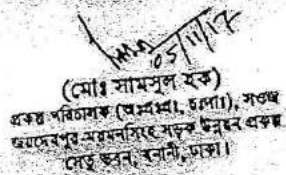 05/11/17
(মোঃ সামসুল হক)
প্রকল্প পরিচালক (অঃপ্রঃপ্রঃ, চঃদাঃ), সওজ
জয়দেবপুর-ময়মনসিংহ সড়ক উন্নয়ন প্রকল্প
সেতু ভবন, বনানী, ঢাকা।